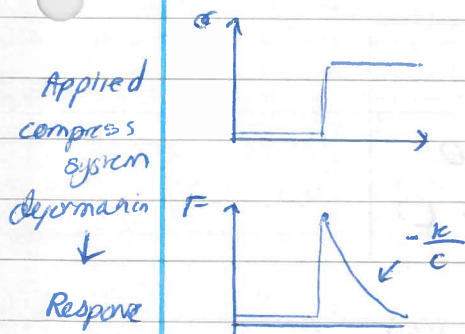 σ
Applied
compress
system
deformation
↓
F
- k/c
Response